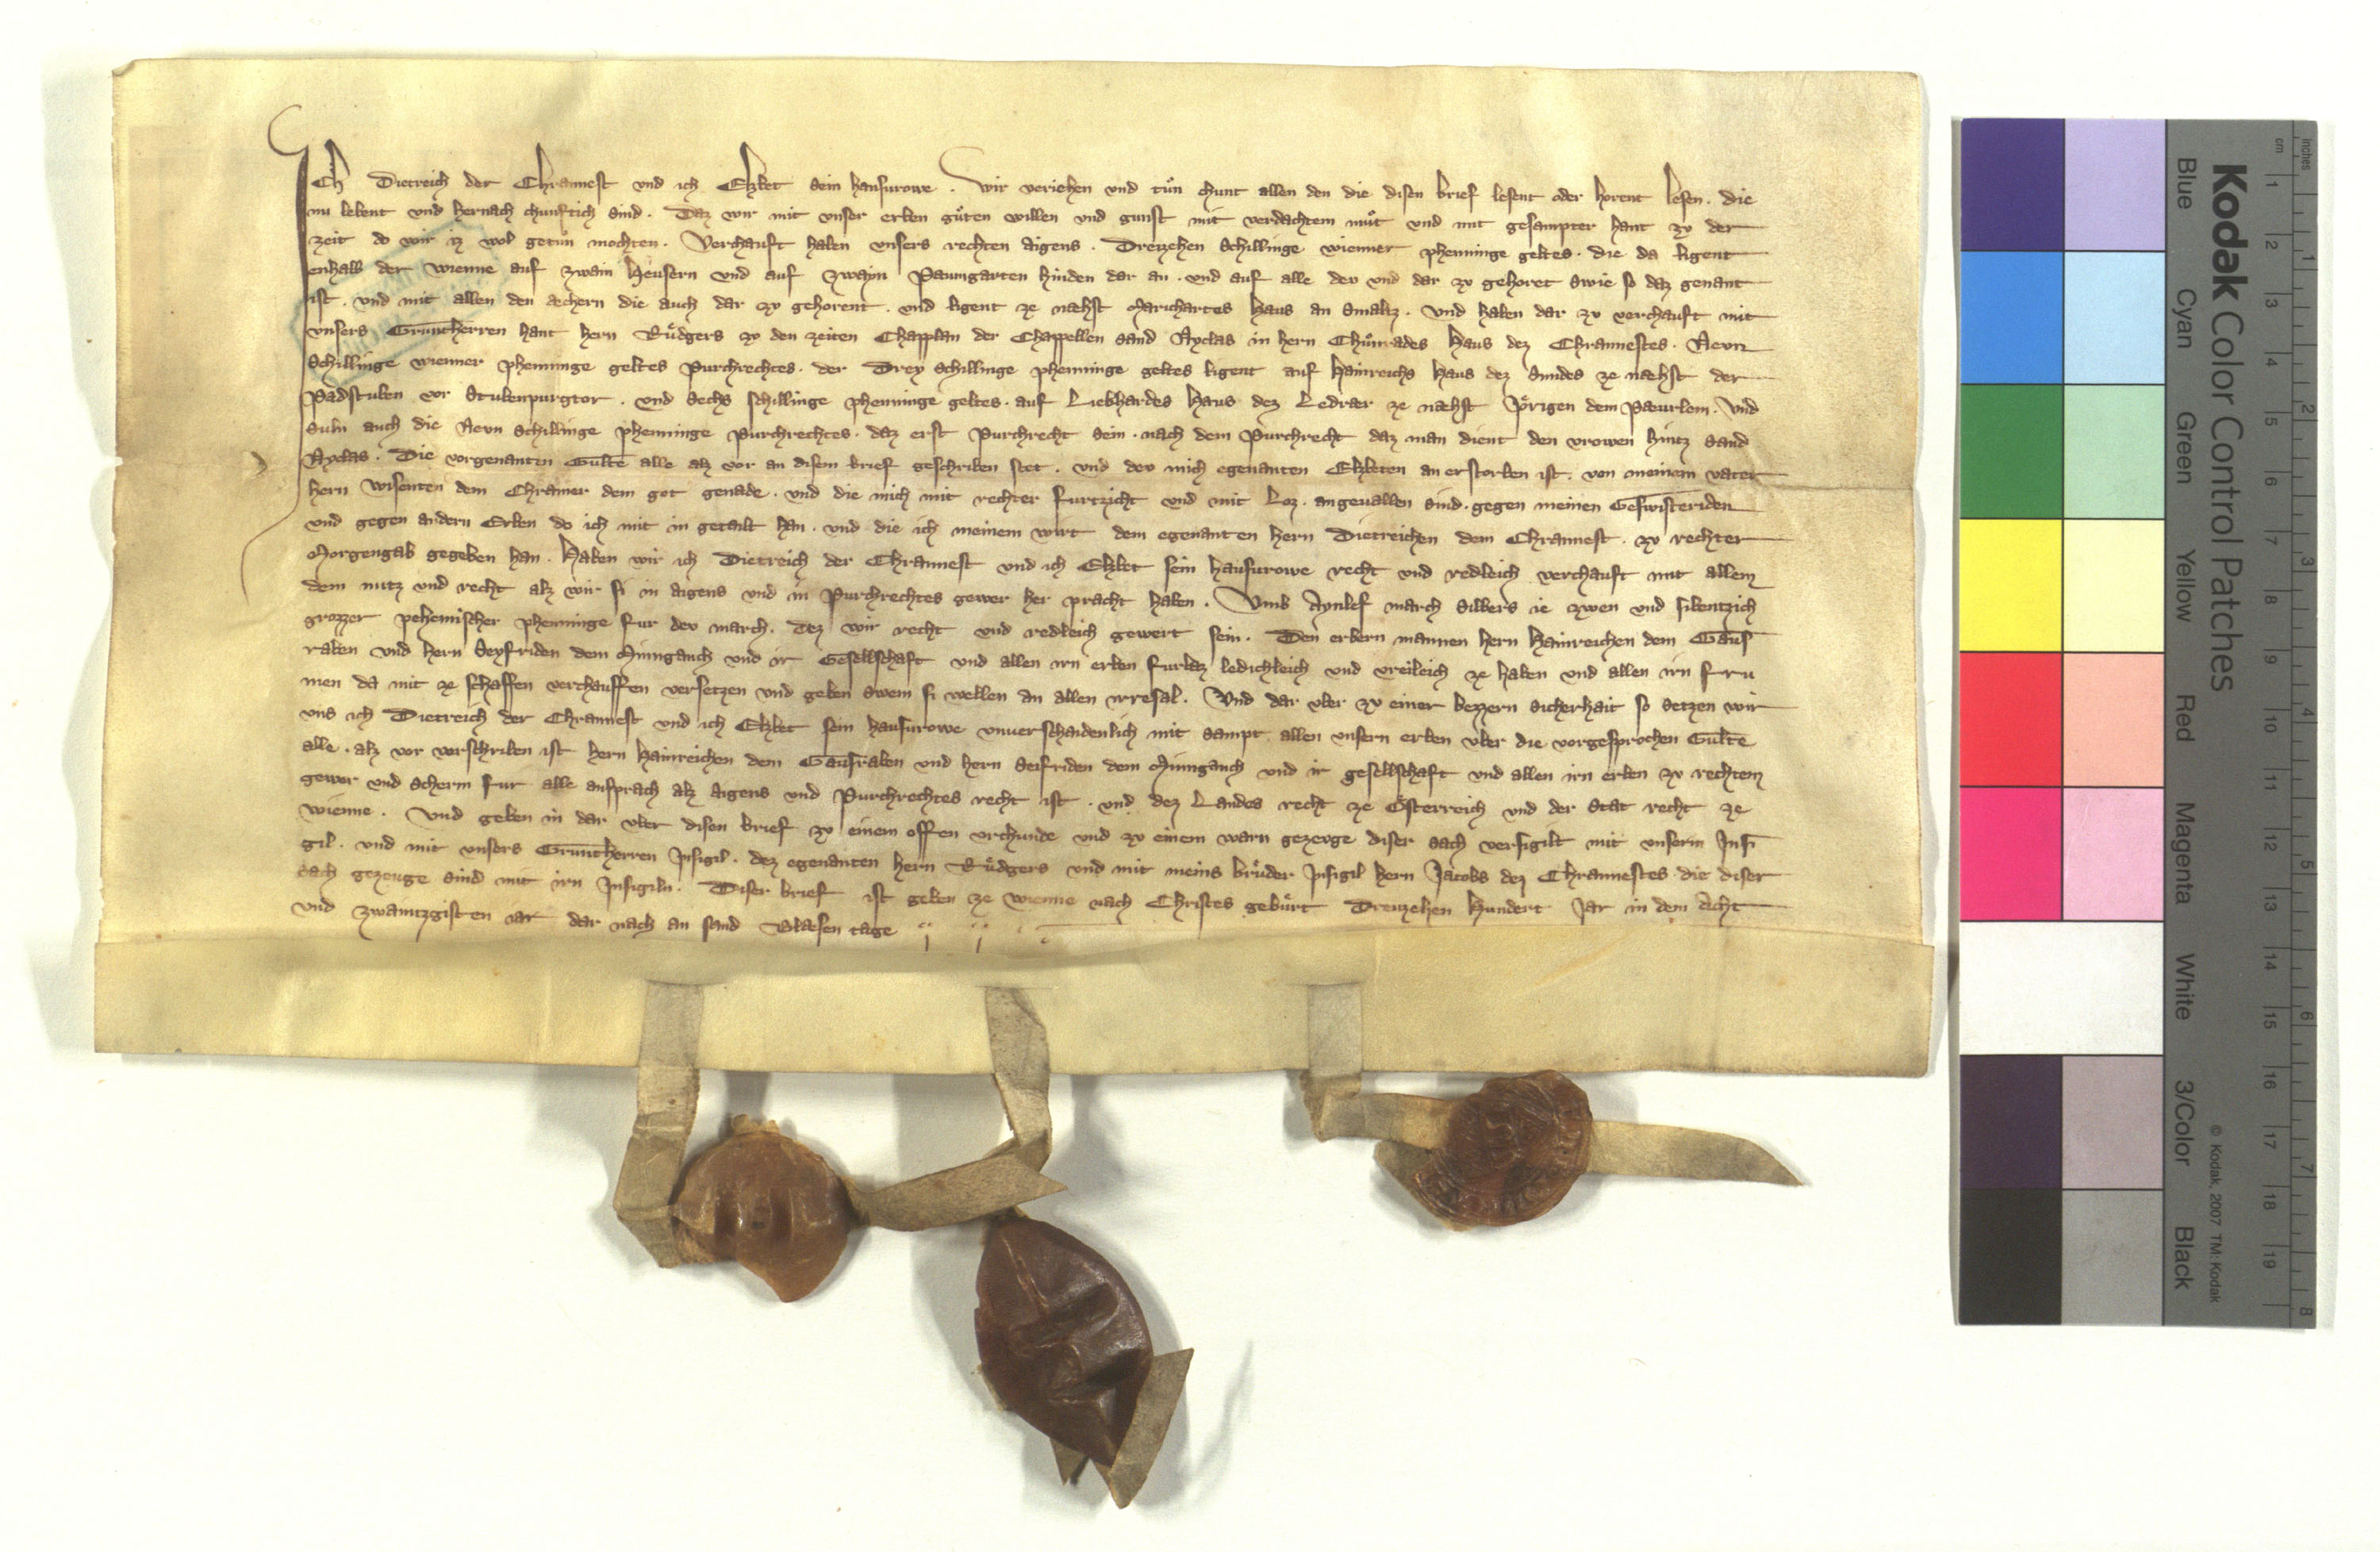 Ich Dietreich der Chrannest vnd ich Elzbet sein hausurowe . Wir veriehen vnd tuͦn chunt allen den die disen brief lesent oder horent lesen . die
nu lebent vnd hernach chunftich sind . Daz wir mit vnser erben guͦten willen vnd gunst mit verdachtem muͦt vnd mit gesampter hant zv der
zeit do wir iz wol getuͦn mochten . Verchauft haben vnsers rechten aigens . Dreizehen schillinge wienner phenninge geltes . die da ligent
enhalb der wienne auf zwain Heusern vnd auf zwayn Paumgarten hinden dar an . vnd auf alle dev vnd dar zv gehoret swie so daz genant
ist . vnd mit allen den æchern die auch dar zv gehorent . vnd ligent ze næhst Marichartes Haus an Smaltz . Vnd haben dar zv verchauft mit
vnsers Gruntherren hant hern Ruͤdgers zv den zeiten Chapplan der Chappellen sand Nyclas in hern Chuͦnrades Haus dez Chrannestes . Nevn
schillinge wienner phenninge geltes Purchrechtes . der Drey schillinge phenninge geltes ligent auf Hainreichs Haus dez Smides ze næhst der
Padstuben vor Stubenpurgtor . vnd Sechs schillinge phenninge geltes . auf Liebhardes Haus dez Ledrær ze næhst Joͤrigen dem Pæurlem . Vnd
suln auch die Nevn schillinge phenninge Purchrechtes . daz erst Purchrecht sein . nach dem Purchrecht daz man dient den vrowen hintz sand
Nyclas . Die vorgenanten Gulte alle alz vor an disem brief geschriben stet . vnd dev mich egenanten Elzbeten an erstorben ist . von meinem vater
hern Wisenten dem Chramer dem got genade . vnd die mich mit rechter furtzicht vnd mit Loz . angeuallen sind . gegen meinen Geswisteriden
vnd gegen andern Erben do ich mit in getailt han . vnd die ich meinem wirt dem egenanten hern Dietreichen dem Chrannest . zv rechter
Morgengab gegeben han . Haben wir ich Dietreich der Chrannest vnd ich Elzbet sein hausurowe recht vnd redleich verchauft mit allem
dem nutz vnd recht alz wir si in aigens vnd in Purchrechtes gewer her pracht haben . Vmb Aynlef march silbers ie zwen vnd sibentzich
grozzer pehemischer phenninge fur dev march . Dez wir recht vnd redleich gewert sein . Den erbern mannen hern Hainreichen dem Gaus
raben vnd hern Seyfriden dem Minngauch vnd ir Gesellschaft vnd allen irn erben furbaz ledichleich vnd vreileich ze haben vnd allen irn fru
men da mit ze schaffen verchauffen versetzen vnd geben swem si wellen an allen irresal . Vnd dar vber zv einer bezzern sicherhait so setzen wir
vns ich Dietreich der Chrannest vnd ich Elzbet sein hausurowe vnuerschaidenlich mit sampt allen vnsern erben vber die vorgesprochen Gulte
alle . alz vor verschriben ist hern Hainreichen dem Gausraben vnd hern Seifriden dem Minngauch vnd ir gesellschaft vnd allen irn erben zv rechtem
gewer vnd scherm fur alle ansprach alz aigens vnd Purchrechtes recht ist . vnd dez Landes recht ze Osterreich vnd der Stat recht ze
wienne . Vnd geben in dar vber disen brief zv einem offen vrchunde vnd zv einem warn gezevge diser sach versigilt mit vnserm Insi
gil . vnd mit vnsers Gruntherren Insigil . dez egenanten hern Ruͤdgers vnd mit meins bruͦder Insigil hern Jacobs dez Chrannestes die diser
sach gezevge sind mit irn Insigiln . Diser brief ist geben ze wienne nach Christes gebuͤrt Dreuzehen Hundert Jar in dem Acht
vnd zwaintzgisten iar dar nach an sand Blæsen tage
Kodak Color Control Patches
Blue Cyan Green Yellow Red Magenta White 3/Color Black
© Kodak, 2007 TM: Kodak
cm 1 2 3 4 5 6 7 8 9 10 11 12 13 14 15 16 17 18 19
inches 1 2 3 4 5 6 7 8